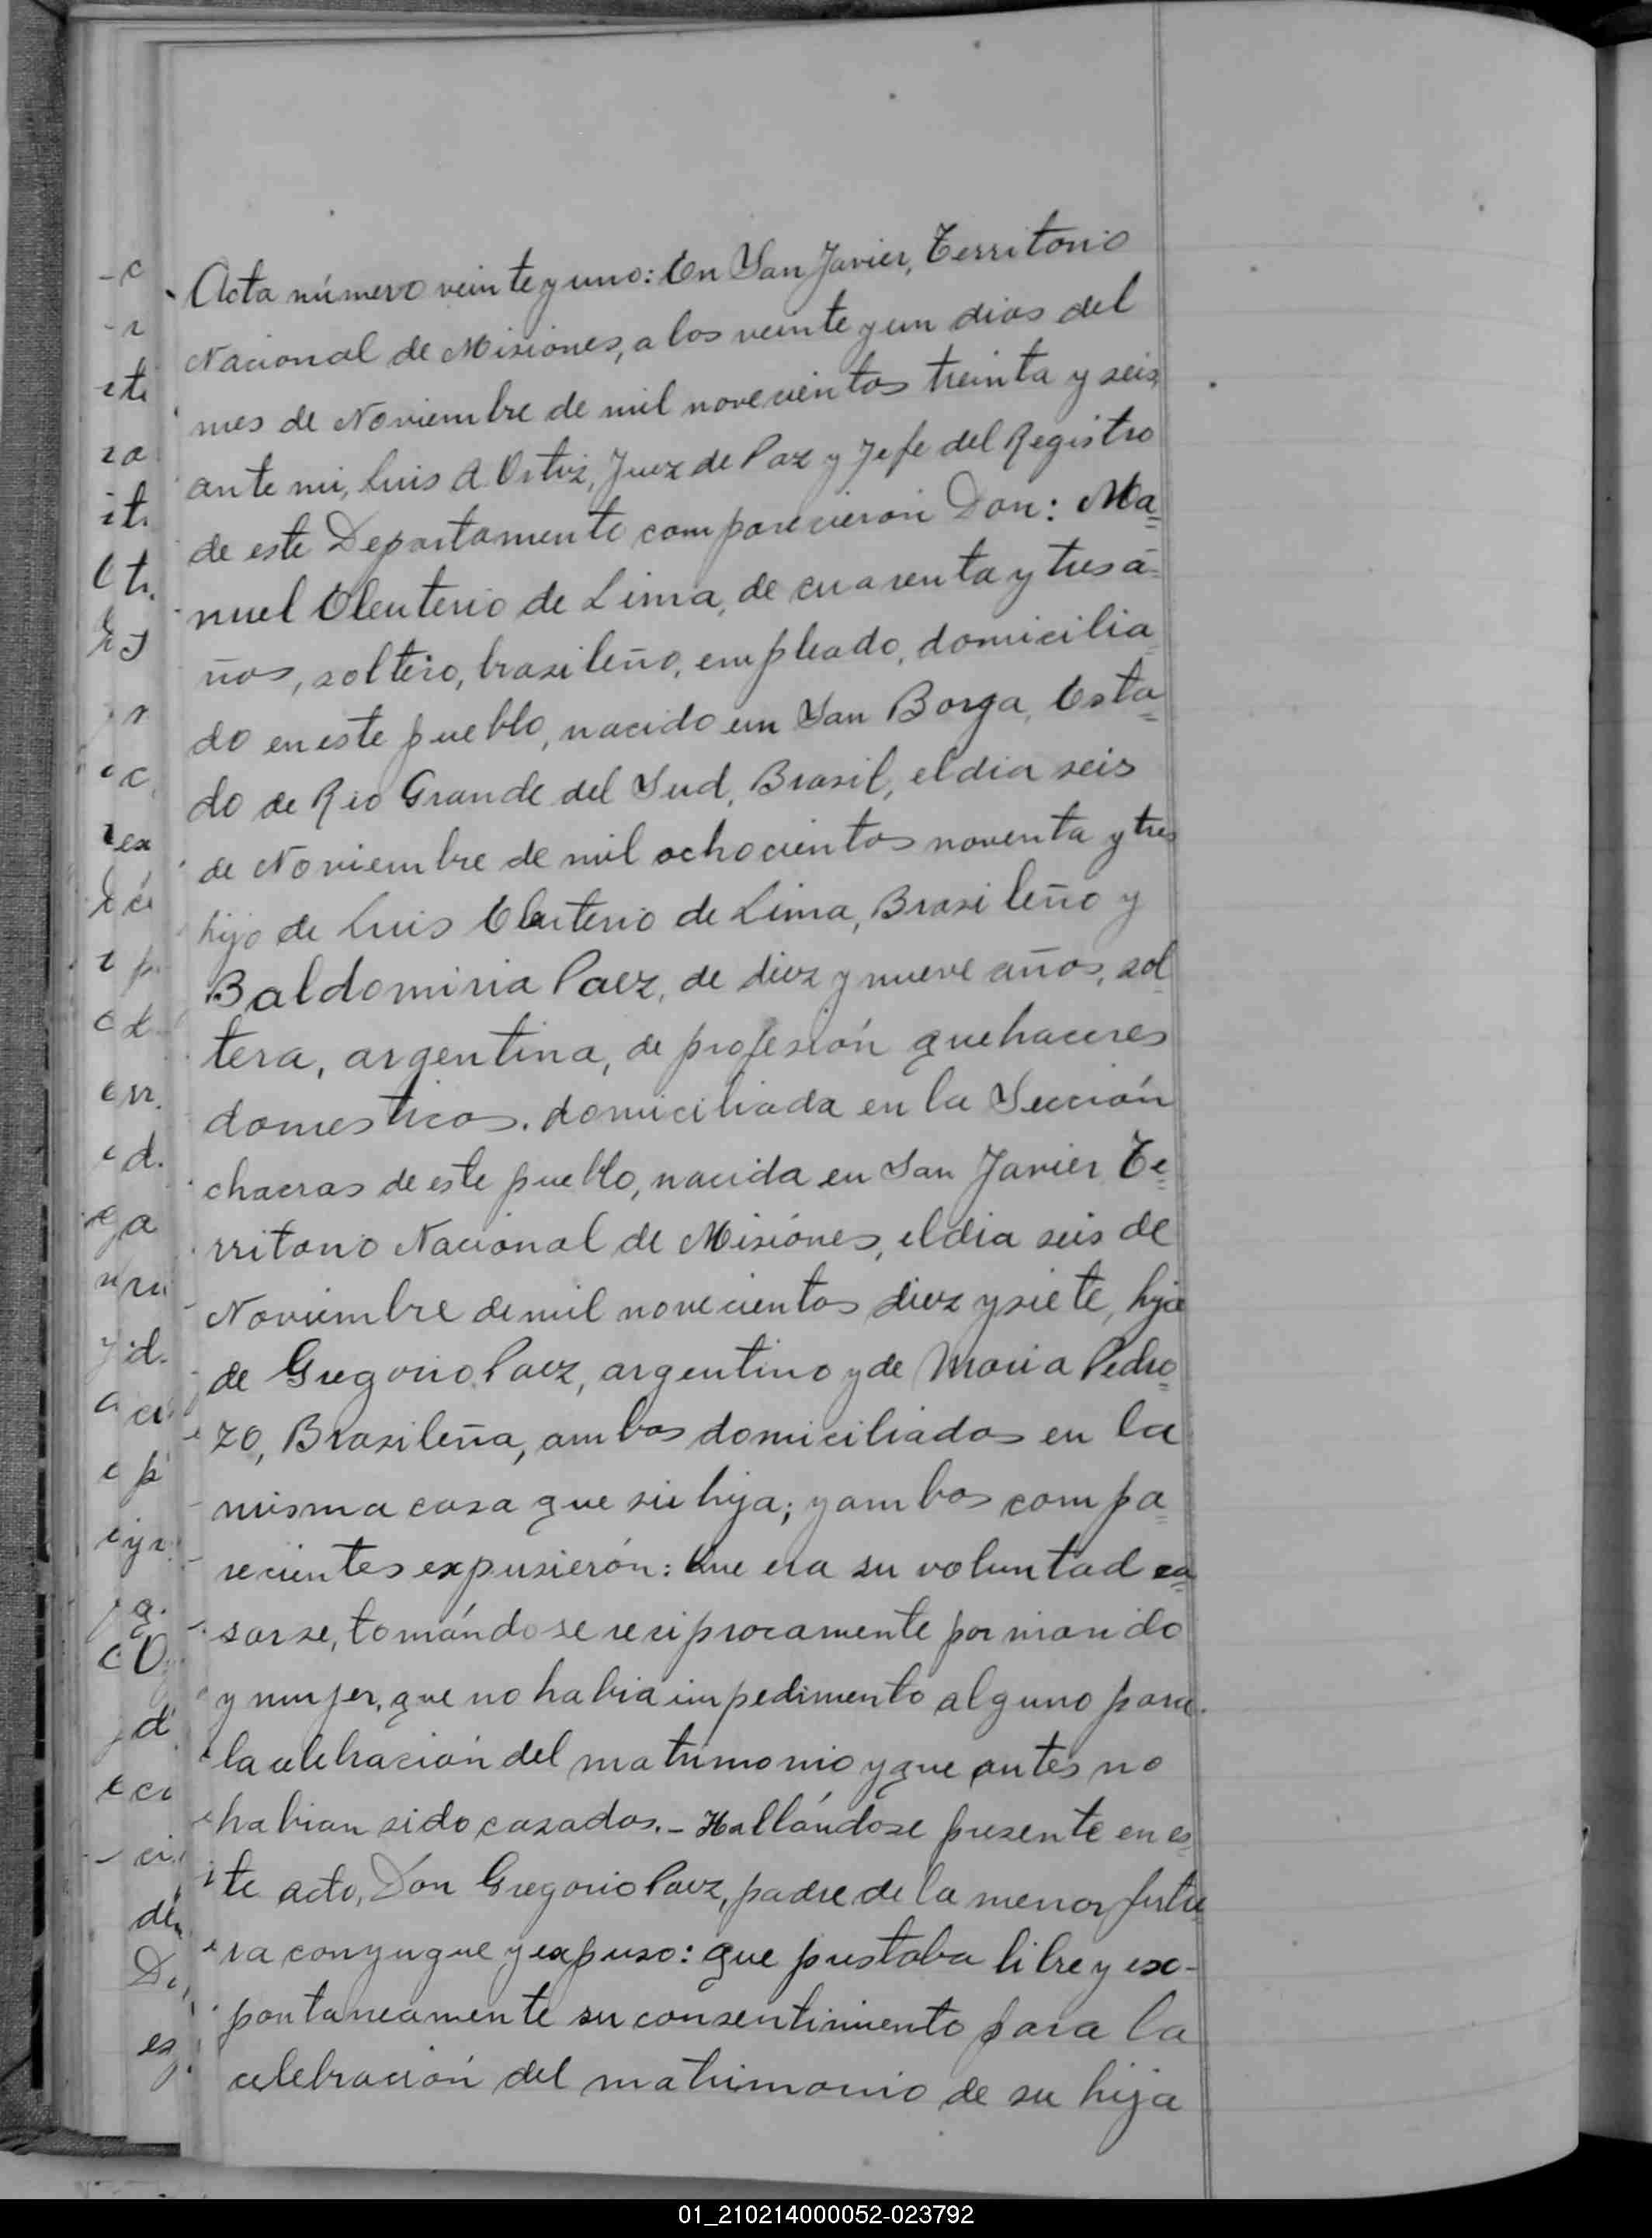 Acta número veinte y uno: En San Javier, Territorio
Nacional de Misiones, a los veinte y un dias del
mes de Noviembre de mil novecientos treinta y seis,
ante mi, Luis A. Ortiz, Juez de Paz y Jefe del Registro
de este Departamento comparecieron Don: Ma=
nuel Eleuterio de Lima, de cuarenta y tres a=
ños, soltero, brasileño, empleado, domicilia
do en este pueblo, nacido en San Borga, Esta=
do de Rio Grande del Sud, Brasil, el dia seis
de Noviembre de mil ochocientos noventa y tres
hijo de Luis Eleuterio de Lima, Brasileño y
Baldomiria Paez, de diez y nueve años, sol
tera, argentina, de profesión quehaceres
domesticos. domiciliada en la Sección
chacras de este pueblo, nacida en San Javier Te=
rritorio Nacional de Misiónes, el dia seis de
Noviembre de mil novecientos diez y siete, hija
de Gregorio Paez, argentino y de Maria Pedro=
zo, Brasileña, ambos domiciliados en la
misma casa que su hija; y ambos compa=
recientes expusierón: Que era su voluntad ca=
sarse, tomándose reciprocamente por marido
y mujer, que no habia impedimento alguno para
la celebración del matrimonio y que antes no
habian sido casados.- Hallándose presente en es=
te acto, Don Gregorio Paez, padre de la menor futu
ra conyugue y expuso: que prestaba libre y exc-
pontaneamente su consentimiento para la
celebración del matrimonio de su hija
01_210214000052-023792